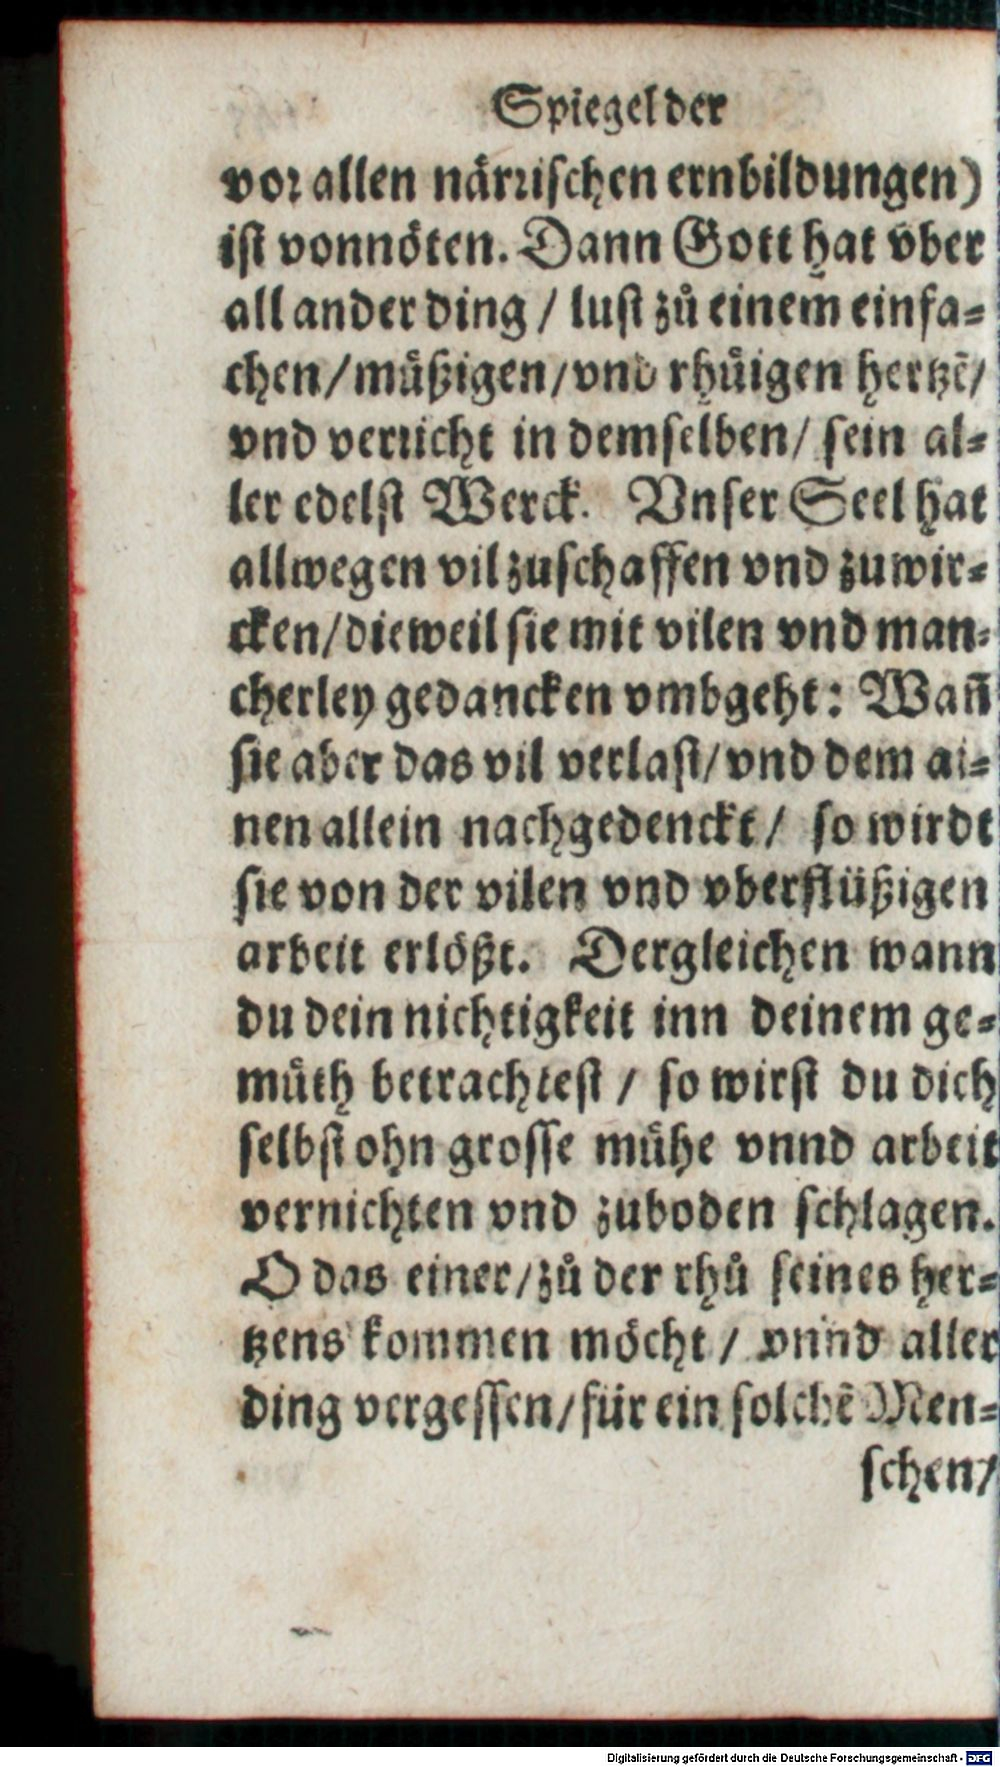 Spiegel der
vor allen närrischen ernbildungen)
ist vonnöten. Dann Gott hat vber
all ander ding / lust zů einem einfa⸗
chen / müßigen / vnd rhůigen hertzẽ /
vnd verricht in demselben / sein al⸗
ler edelst Werck. Vnser Seel hat
allwegen vil zuschaffen vnd zuwir⸗
cken / dieweil sie mit vilen vnd man⸗
cherley gedancken vmbgeht: Wañ
sie aber das vil verlast / vnd dem ai⸗
nen allein nachgedenckt / so wirdt
sie von der vilen vnd vberflüßigen
arbeit erlößt. Dergleichen wann
du dein nichtigkeit inn deinem ge⸗
müth betrachtest / so wirst du dich
selbst ohn grosse mühe vnnd arbeit
vernichten vnd zuboden schlagen.
O das einer / zů der rhů seines her⸗
tzens kommen möcht / vnnd aller
ding vergessen / für ein solchẽ Men⸗
schen /
Digitalisierung gefördert durch die Deutsche Forschungsgemeinschaft - DFG